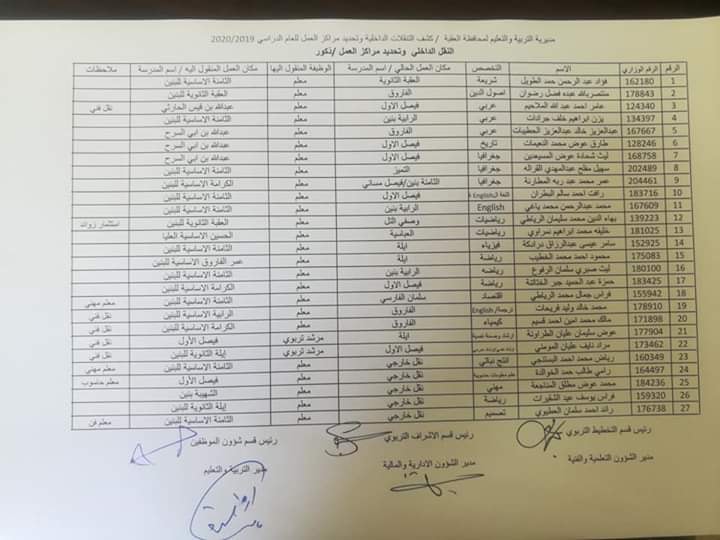 مديرية التربية والتعليم لمحافظة العقبة / كشف التنقلات الداخلية وتحديد مراكز العمل للعام الدراسي 2020/2019
النقل الداخلي وتحديد مراكز العمل /ذكور
الرقم الرقم الوزاري الاسم التخصص مكان العمل الحالي / اسم المدرسة الوظيفة المنقول اليها مكان العمل المنقول اليه / اسم المدرسة ملاحظات
1 162180 فؤاد عبد الرحمن حمد الطويل شريعة العقبة الثانوية معلم الثامنة الاساسية للبنين
2 178843 منتصر بالله عبده فضل رضوان اصول الدين الفاروق معلم العقبة الثانوية للبنين
3 124340 عامر احمد عبد الله الملاحيم عربي فيصل الاول معلم عبدالله بن قيس الحارثي نقل فني
4 134397 يزن ابراهيم خلف جرادات عربي الرابية بنين معلم الثامنة الاساسية للبنين
5 167667 عبدالعزيز خالد عبدالعزيز الحطيبات عربي الفاروق معلم عبدالله بن ابي السرح
6 128246 طارق عوض محمد النعيمات تاريخ فيصل الاول معلم عبدالله بن ابي السرح
7 168758 ليث شحادة عوض المسيعدين جغرافيا فيصل الاول معلم عبدالله بن ابي السرح
8 202489 سهيل مفلح عبدالمهدي القراله جغرافيا التميز معلم الثامنة الاساسية للبنين
9 204461 عمر محمد عبد ربه المطارنة جغرافيا الثامنة بنين/فيصل مسائي معلم الكرامة الاساسية للبنين
10 183716 رافت احمد سالم البطران فيصل الاول معلم الثامنة الاساسية للبنين
11 167609 محمد عبدالرحمن محمد ياغي English الرابية بنين معلم الثامنة الاساسية للبنين
12 139223 بهاء الدين محمد سليمان الرياطي رياضيات وصفي التل معلم العقبة الثانوية للبنين استثمار زوائد
13 181025 خليفه محمد ابراهيم نمراوي رياضيات العباسية معلم الحسين الاساسية العليا
14 152925 سامر عيسى عبدالرزاق درادكة فيزياء ايلة معلم الثامنة الاساسية للبنين
15 175083 محمود احمد محمد الخطيب رياضة ايلة معلم عمر الفاروق الاساسية للبنين
16 180100 ليث صبري سلمان الرفوع رياضه الرابية بنين معلم الثامنة الاساسية للبنين
17 183425 حمزة عبد الحميد جبر الختاتنة رياضة فيصل الأول معلم الكرامة الاساسية للبنين
18 155942 فراس جمال محمد الرياطي اقتصاد سلمان الفارسي معلم الثامنة الاساسية للبنين معلم مهني
19 178910 محمد خالد وليد فريحات ترجمة/English الفاروق معلم الرابية الاساسية للبنين نقل فني
20 171898 مالك محمد امين احمد قسيم كيمياء الفاروق معلم الكرامة الاساسية للبنين نقل فني
21 177904 عوض سليمان عليان الطراونة ايلة مرشد تربوي فيصل الأول نقل فني
22 173462 مراد نايف عليان المومني فيصل الاول مرشد تربوي إيلة الثانوية للبنين نقل فني
23 160349 رياض محمد احمد البستنجي انتاج نباتي نقل خارجي معلم الثامنة الاساسية للبنين معلم مهني
24 164497 رامي طالب حمد الخوالدة نقل خارجي معلم فيصل الأول معلم حاسوب
25 184236 محمد عوض مطلق المناجعة مهني نقل خارجي معلم الشهيبة بنين
26 159320 فراس يوسف عيد الشخيرات رياضة نقل خارجي معلم إيلة الثانوية للبنين
27 176738 رائد احمد سلمان الحطيوي تصميم نقل خارجي معلم الثامنة الاساسية للبنين معلم فن
رئيس قسم التخطيط التربوي رئيس قسم الاشراف التربوي رئيس قسم شؤون الموظفين
مدير الشؤون التعليمية والفنية مدير الشؤون الادارية والمالية مدير التربية والتعليم